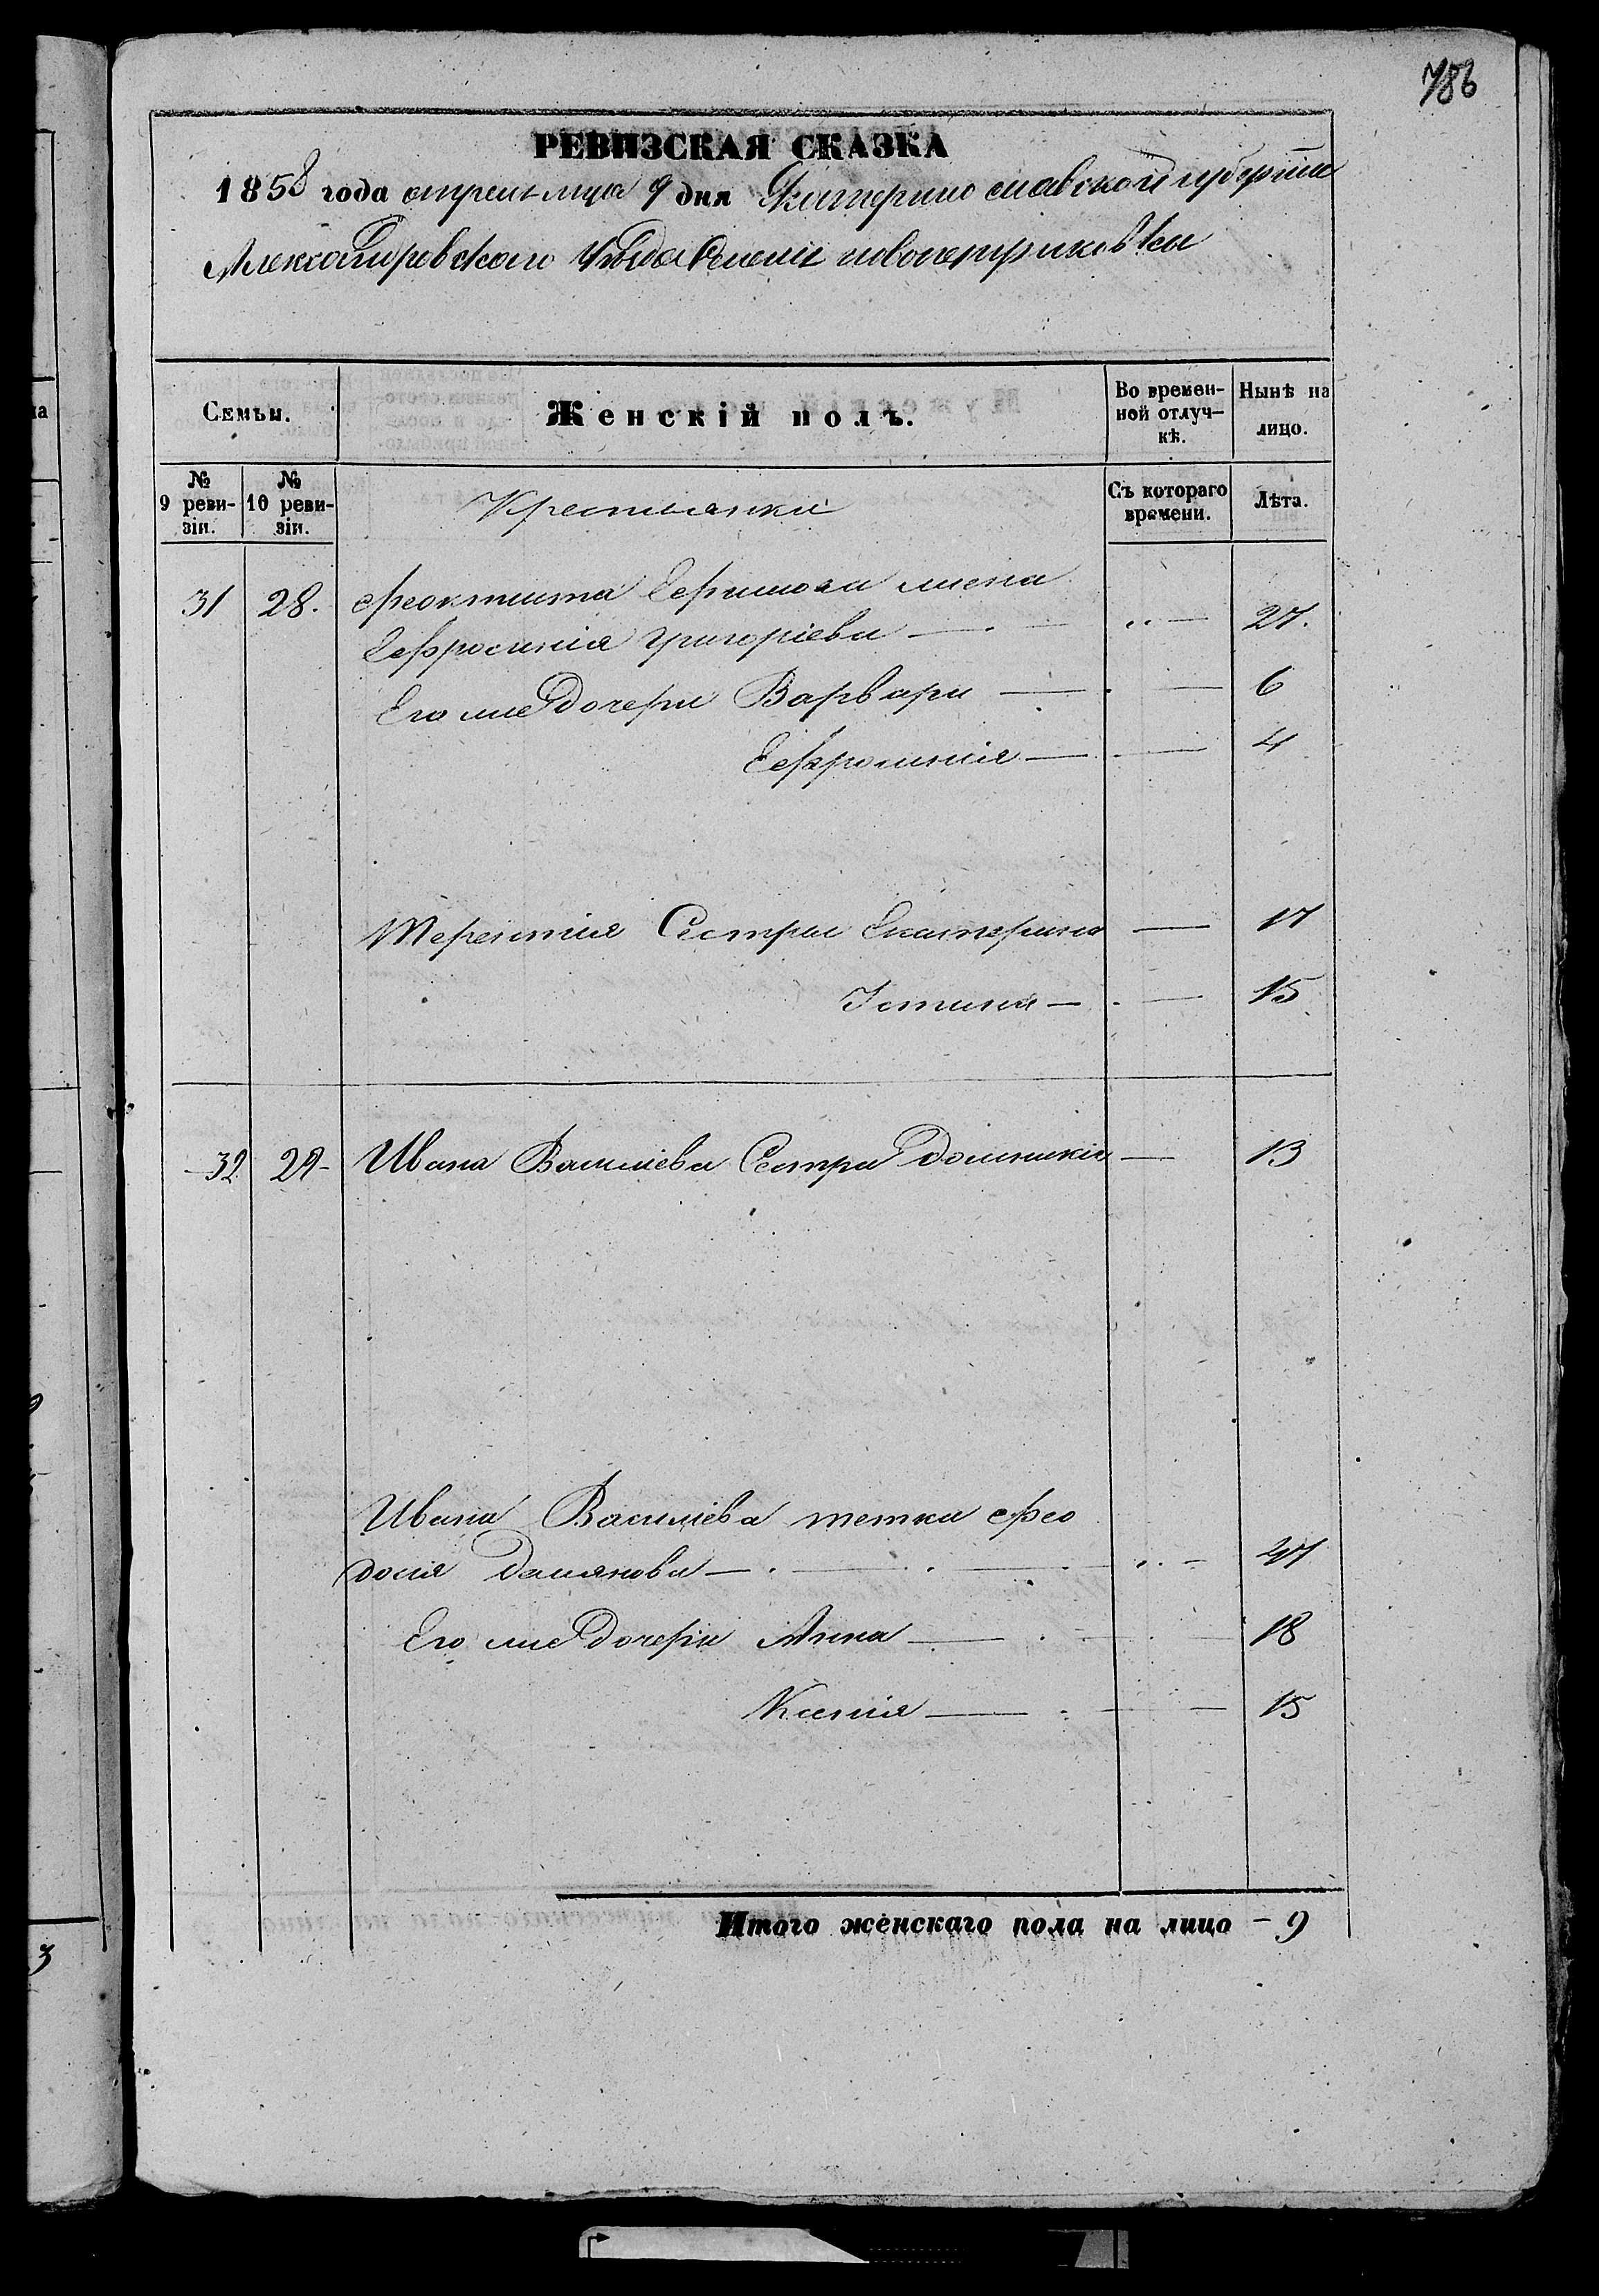 786
РЕВИЗСКАЯ СКАЗКА
1858 года апреля мца 9 дня Екатеринославской губерніи
Александровского уѣзда Селенія новопетриковки
Семьи.
Женскій полъ.
Во времен-
ной отлуч-
кѣ.
Нынѣ на
лицо.
№
9 реви-
зіи.
№
10 реви-
зіи.
Крестьянки
Съ котораго
времени.
Лѣта.
31 28. феоктиста жена
Ефросинія григоріева — 27.
Его же дочери Варвара — 6
Ефросинія — 4
Терентія Сестры Екатерина — 17
Устинія — 15
32 29 Ивана Василіева Сестра Домникія — 13
Ивана Василіева тетка фео
досія Демянова — 47
Его же дочери Анна — 18
Ксенія — 15
Итого женскаго пола на лицо — 9
3